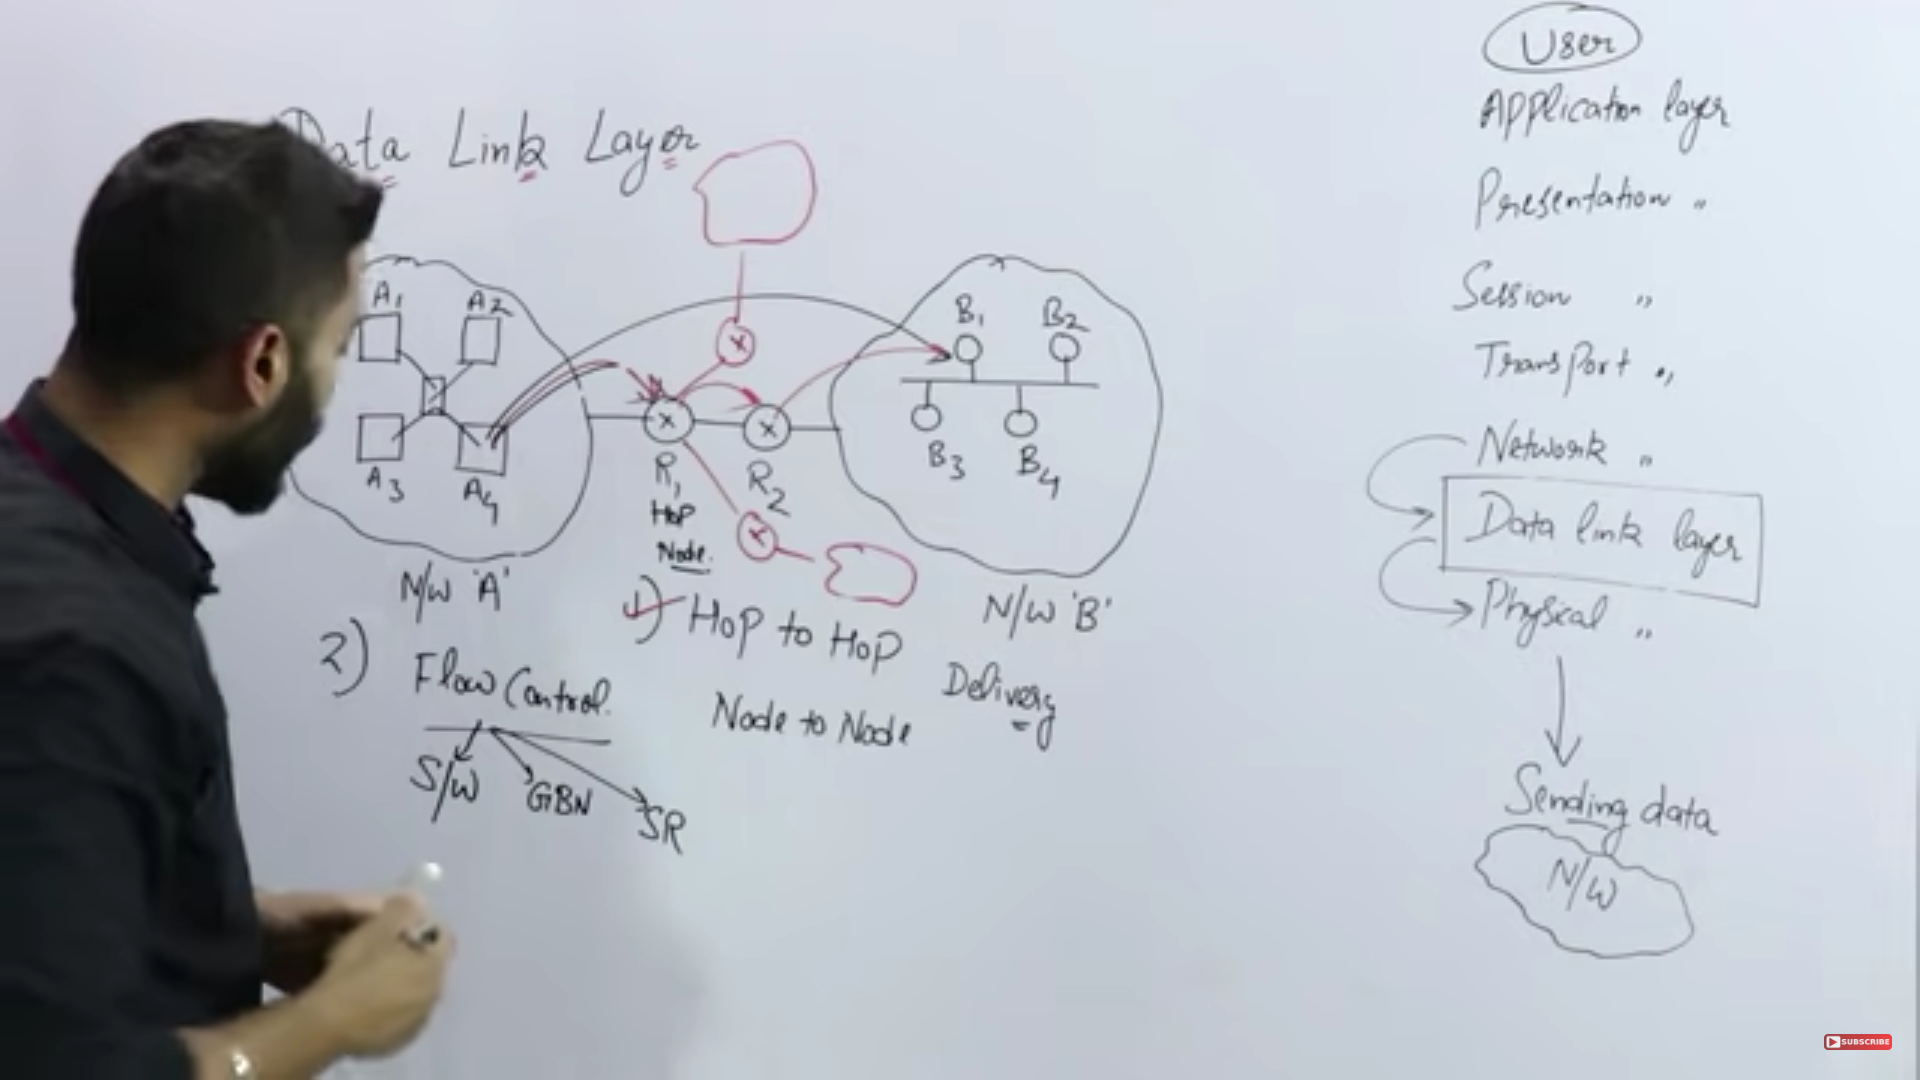 Data Link Layer
A1
A2
A3
A4
N/W 'A'
R1
Hop
Node.
R2
B1
B2
B3
B4
N/W 'B'
1) Hop to Hop
Node to Node
Delivery
2) Flow Control.
S/W
GBN
SR
User
Application layer
Presentation "
Session "
Transport "
Network "
Data link layer
Physical "
Sending data
N/W
SUBSCRIBE